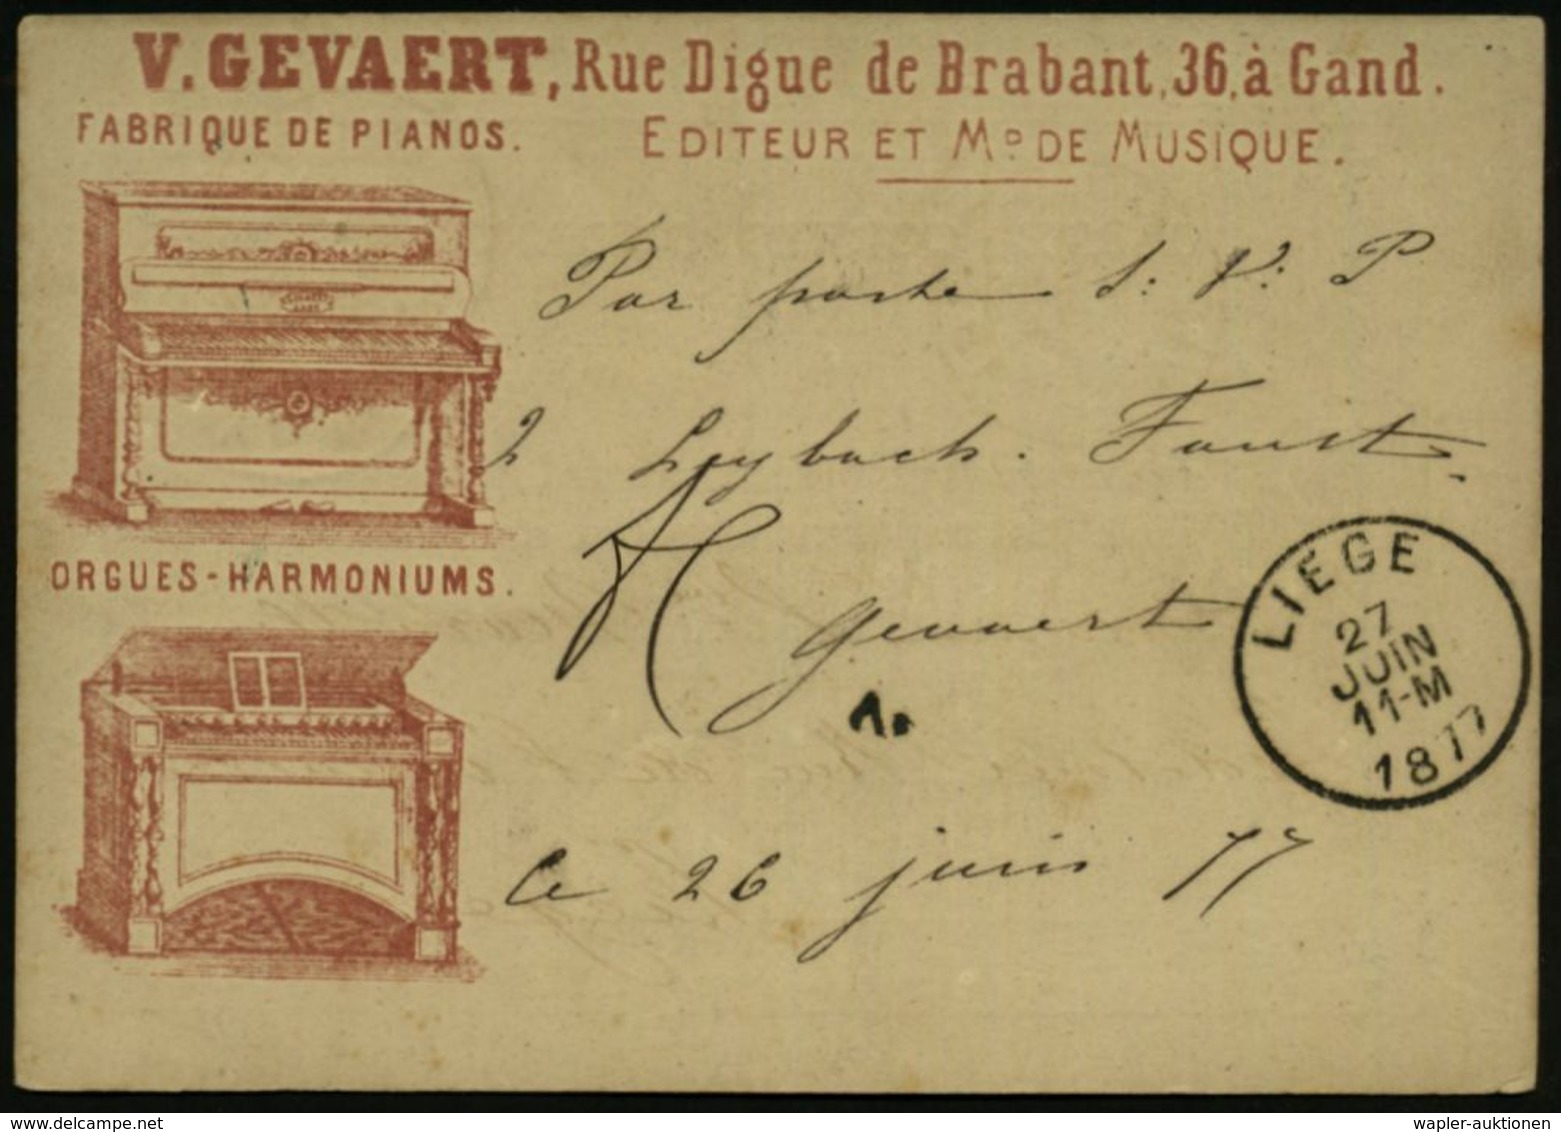 V. GEVAERT, Rue Digue de Brabant, 36, à Gand.
FABRIQUE DE PIANOS.
EDITEUR ET Md DE MUSIQUE.
Par poste s: v: P
2 Leybach. Faust
ORGUES-HARMONIUMS.
Gevaert
LIÉGE
27
JUIN
11-M
1877
1.
Ce 26 juin 77
wapler-auktionen